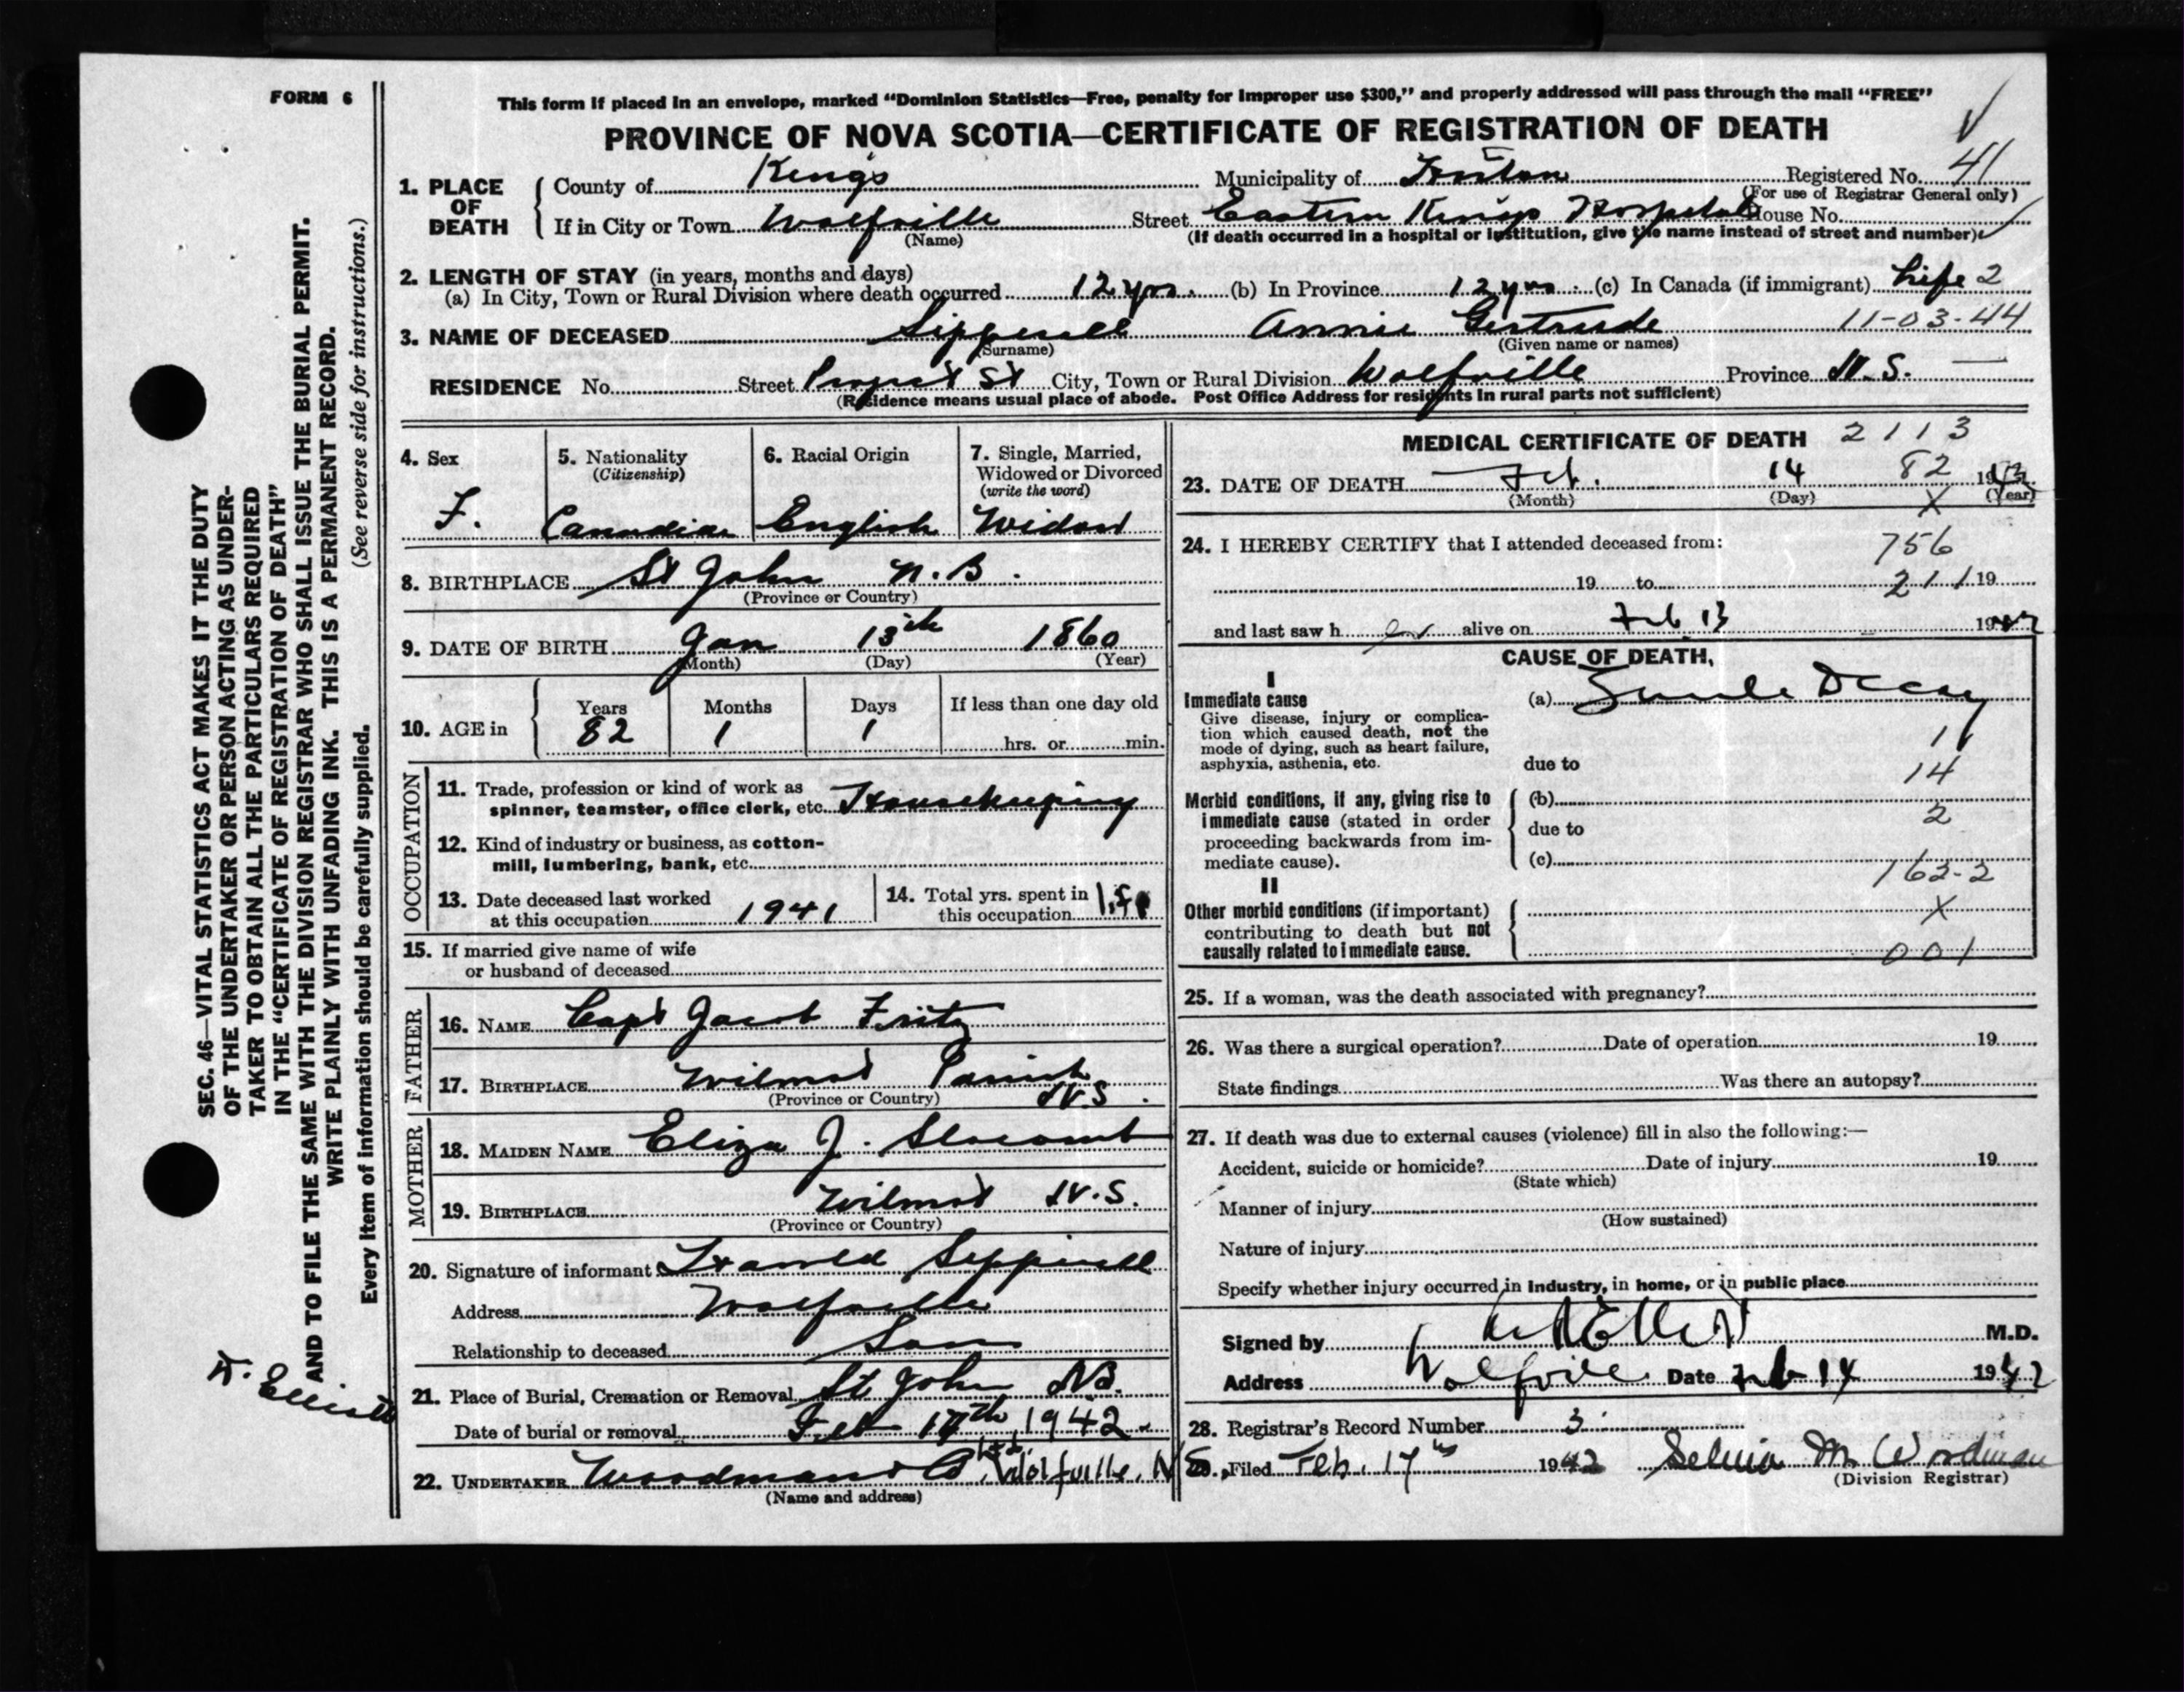 FORM 6
This form if placed in an envelope, marked "Dominion Statistics—Free, penalty for improper use $300," and properly addressed will pass through the mail "FREE"
PROVINCE OF NOVA SCOTIA—CERTIFICATE OF REGISTRATION OF DEATH
1. PLACE OF DEATH County of Kings Municipality of Registered No. 41
(For use of Registrar General only)
If in City or Town Wolfville Street Eastern Kings Hospital House No.
(Name) (If death occurred in a hospital or institution, give the name instead of street and number)
2. LENGTH OF STAY (in years, months and days)
(a) In City, Town or Rural Division where death occurred 12 yrs. (b) In Province 12 yrs. (c) In Canada (if immigrant) Life 2
3. NAME OF DECEASED Sipprell Annie Gertrude 11-03-44
(Surname) (Given name or names)
RESIDENCE No. Street Prospect St City, Town or Rural Division Wolfville Province N.S. —
(Residence means usual place of abode. Post Office Address for residents in rural parts not sufficient)
4. Sex F.
5. Nationality (Citizenship) Canadian
6. Racial Origin English
7. Single, Married, Widowed or Divorced (write the word) Widow
8. BIRTHPLACE St John N.B.
(Province or Country)
9. DATE OF BIRTH Jan 13th 1860
(Month) (Day) (Year)
10. AGE in Years 82 Months 1 Days 1 If less than one day old hrs. or min.
OCCUPATION
11. Trade, profession or kind of work as spinner, teamster, office clerk, etc. Housekeeping
12. Kind of industry or business, as cotton-mill, lumbering, bank, etc.
13. Date deceased last worked at this occupation 1941
14. Total yrs. spent in this occupation Life
15. If married give name of wife
or husband of deceased
FATHER
16. NAME Capt Jacob Fritz
17. BIRTHPLACE Wilmot Parish N.S.
(Province or Country)
MOTHER
18. MAIDEN NAME Eliza J. Slocomb
19. BIRTHPLACE Wilmot N.S.
(Province or Country)
20. Signature of informant Harold Sipprell
Address Wolfville
Relationship to deceased Son
21. Place of Burial, Cremation or Removal St John NB.
Date of burial or removal Feb 17th, 1942
22. UNDERTAKER Woodmans Co. Ltd. Wolfville, N.S.
(Name and address)
MEDICAL CERTIFICATE OF DEATH 2113
82
23. DATE OF DEATH Feb. 14 1942
(Month) (Day) (Year)
X
24. I HEREBY CERTIFY that I attended deceased from:
756
19 to 211 19
and last saw her alive on Feb 13 1942
CAUSE OF DEATH,
I
Immediate cause (a) Senile Decay
Give disease, injury or complica-
tion which caused death, not the
mode of dying, such as heart failure,
asphyxia, asthenia, etc.
due to
14
Morbid conditions, if any, giving rise to (b)
immediate cause (stated in order 2
proceeding backwards from im- due to
mediate cause). (c)
162-2
II
Other morbid conditions (if important) X
contributing to death but not
causally related to immediate cause. 001
25. If a woman, was the death associated with pregnancy?
26. Was there a surgical operation? Date of operation 19
State findings Was there an autopsy?
27. If death was due to external causes (violence) fill in also the following:—
Accident, suicide or homicide? Date of injury 19
(State which)
Manner of injury
(How sustained)
Nature of injury
Specify whether injury occurred in industry, in home, or in public place
Signed by M.D.
Address Wolfville Date Feb 14 1942
28. Registrar's Record Number 3
29. Filed Feb. 17th 1942 M. Woodman
(Division Registrar)
SEC. 46—VITAL STATISTICS ACT MAKES IT THE DUTY
OF THE UNDERTAKER OR PERSON ACTING AS UNDER-
TAKER TO OBTAIN ALL THE PARTICULARS REQUIRED
IN THE "CERTIFICATE OF REGISTRATION OF DEATH"
AND TO FILE THE SAME WITH THE DIVISION REGISTRAR WHO SHALL ISSUE THE BURIAL PERMIT.
WRITE PLAINLY WITH UNFADING INK. THIS IS A PERMANENT RECORD.
Every item of information should be carefully supplied. (See reverse side for instructions.)
Elliott